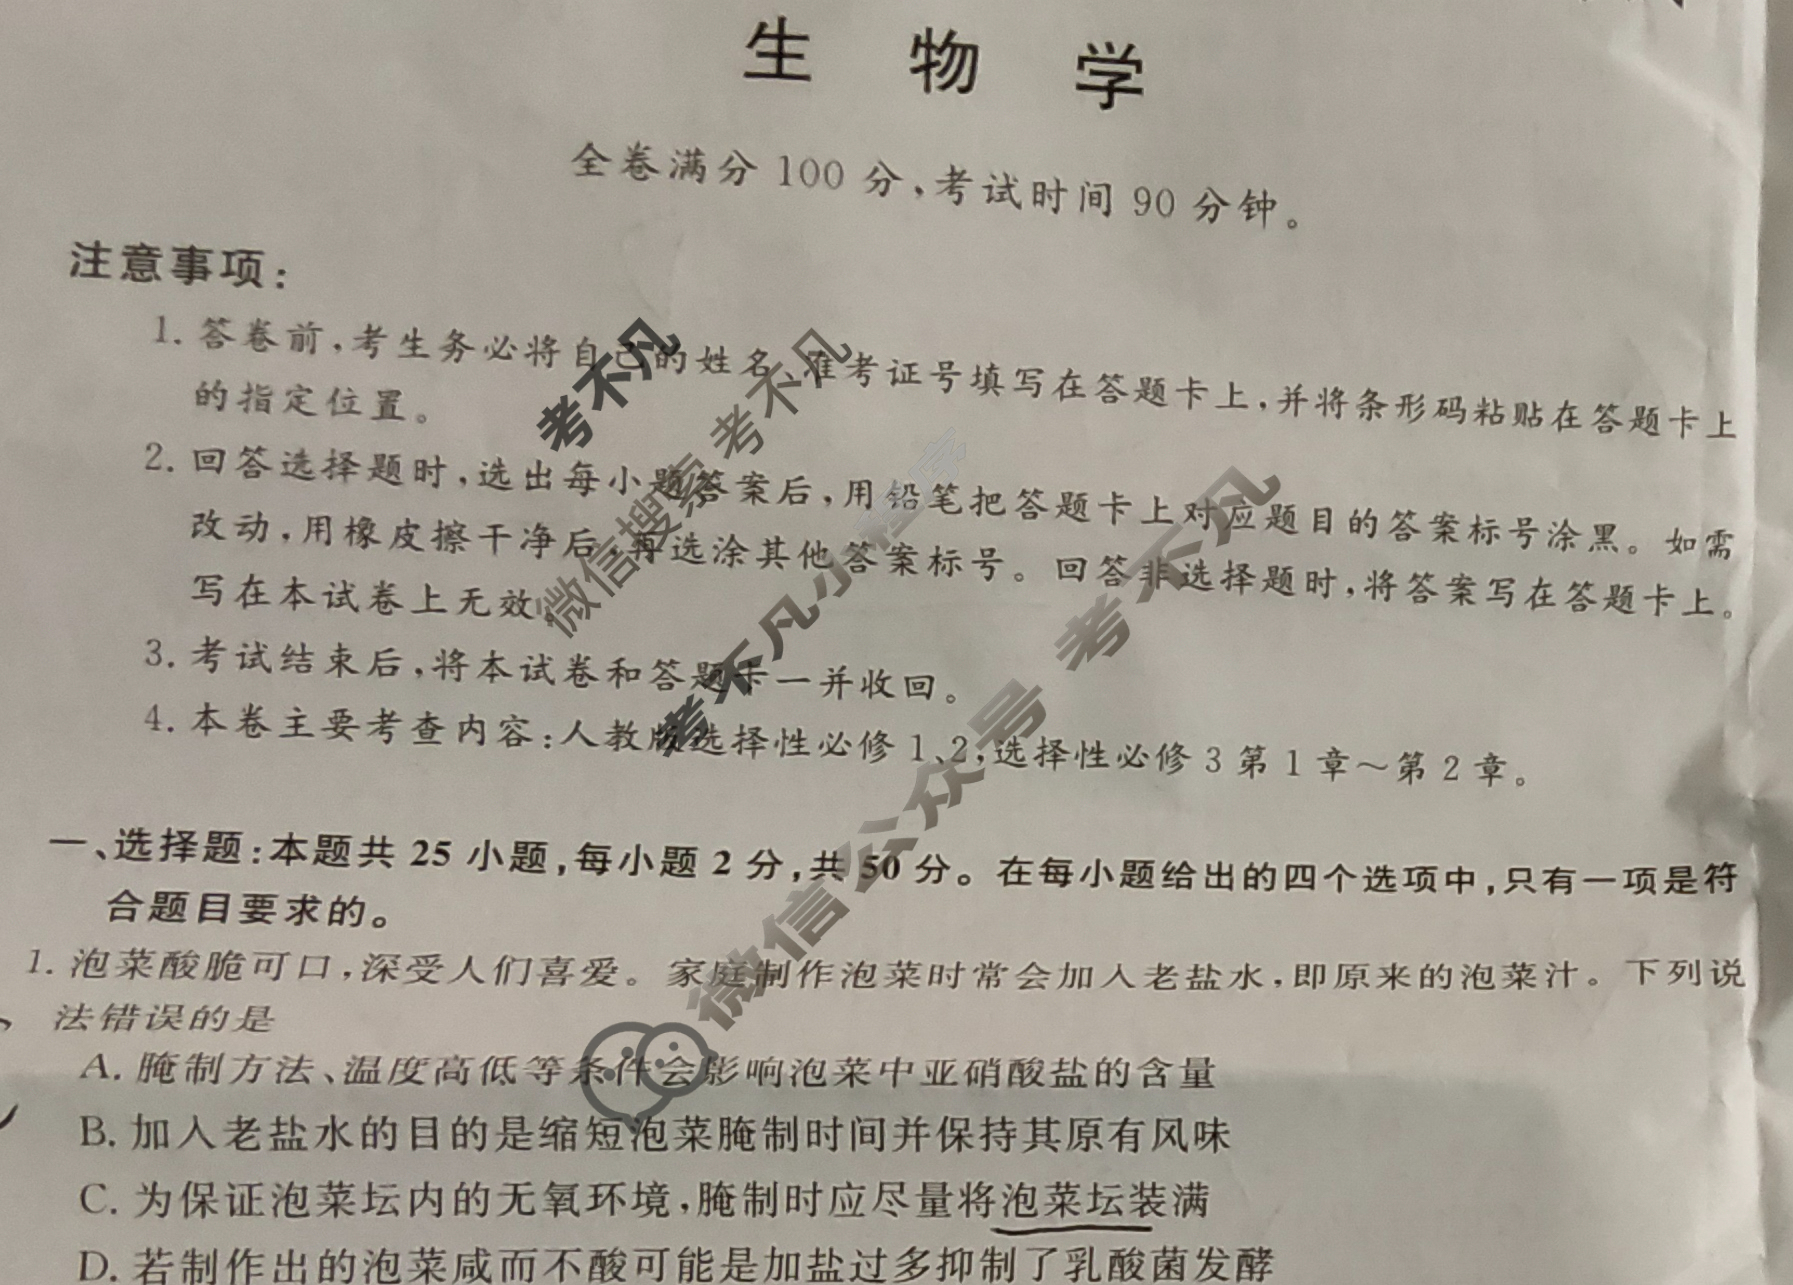 生 物 学
全卷满分 100 分,考试时间 90 分钟。
注意事项:
1. 答卷前,考生务必将自己的姓名、准考证号填写在答题卡上,并将条形码粘贴在答题卡上
的指定位置。
2. 回答选择题时,选出每小题答案后,用铅笔把答题卡上对应题目的答案标号涂黑。如需
改动,用橡皮擦干净后,再选涂其他答案标号。回答非选择题时,将答案写在答题卡上。
写在本试卷上无效。
3. 考试结束后,将本试卷和答题卡一并收回。
4. 本卷主要考查内容:人教版选择性必修 1、2,选择性必修 3 第 1 章~第 2 章。
一、选择题:本题共 25 小题,每小题 2 分,共 50 分。在每小题给出的四个选项中,只有一项是符
合题目要求的。
1. 泡菜酸脆可口,深受人们喜爱。家庭制作泡菜时常会加入老盐水,即原来的泡菜汁。下列说
法错误的是
A. 腌制方法、温度高低等条件会影响泡菜中亚硝酸盐的含量
B. 加入老盐水的目的是缩短泡菜腌制时间并保持其原有风味
C. 为保证泡菜坛内的无氧环境,腌制时应尽量将泡菜坛装满
D. 若制作出的泡菜咸而不酸可能是加盐过多抑制了乳酸菌发酵
考不凡
微信搜索 考不凡
考不凡小程序
微信公众号 考不凡